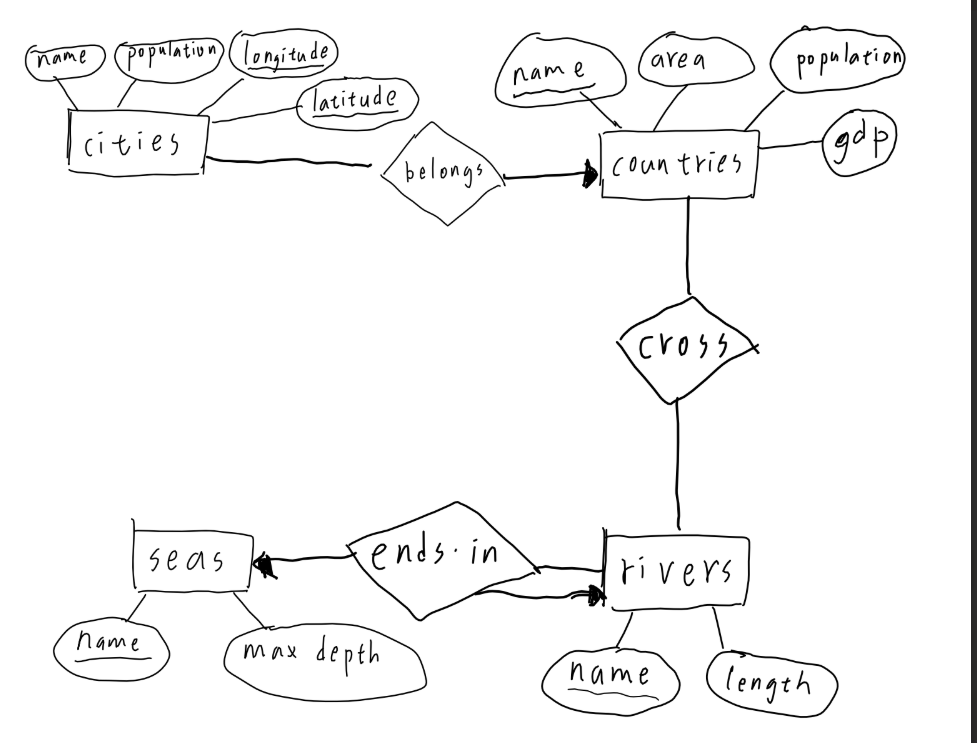 name
population
longitude
latitude
cities
belongs
name
area
population
gdp
countries
cross
seas
ends-in
rivers
name
max depth
name
length